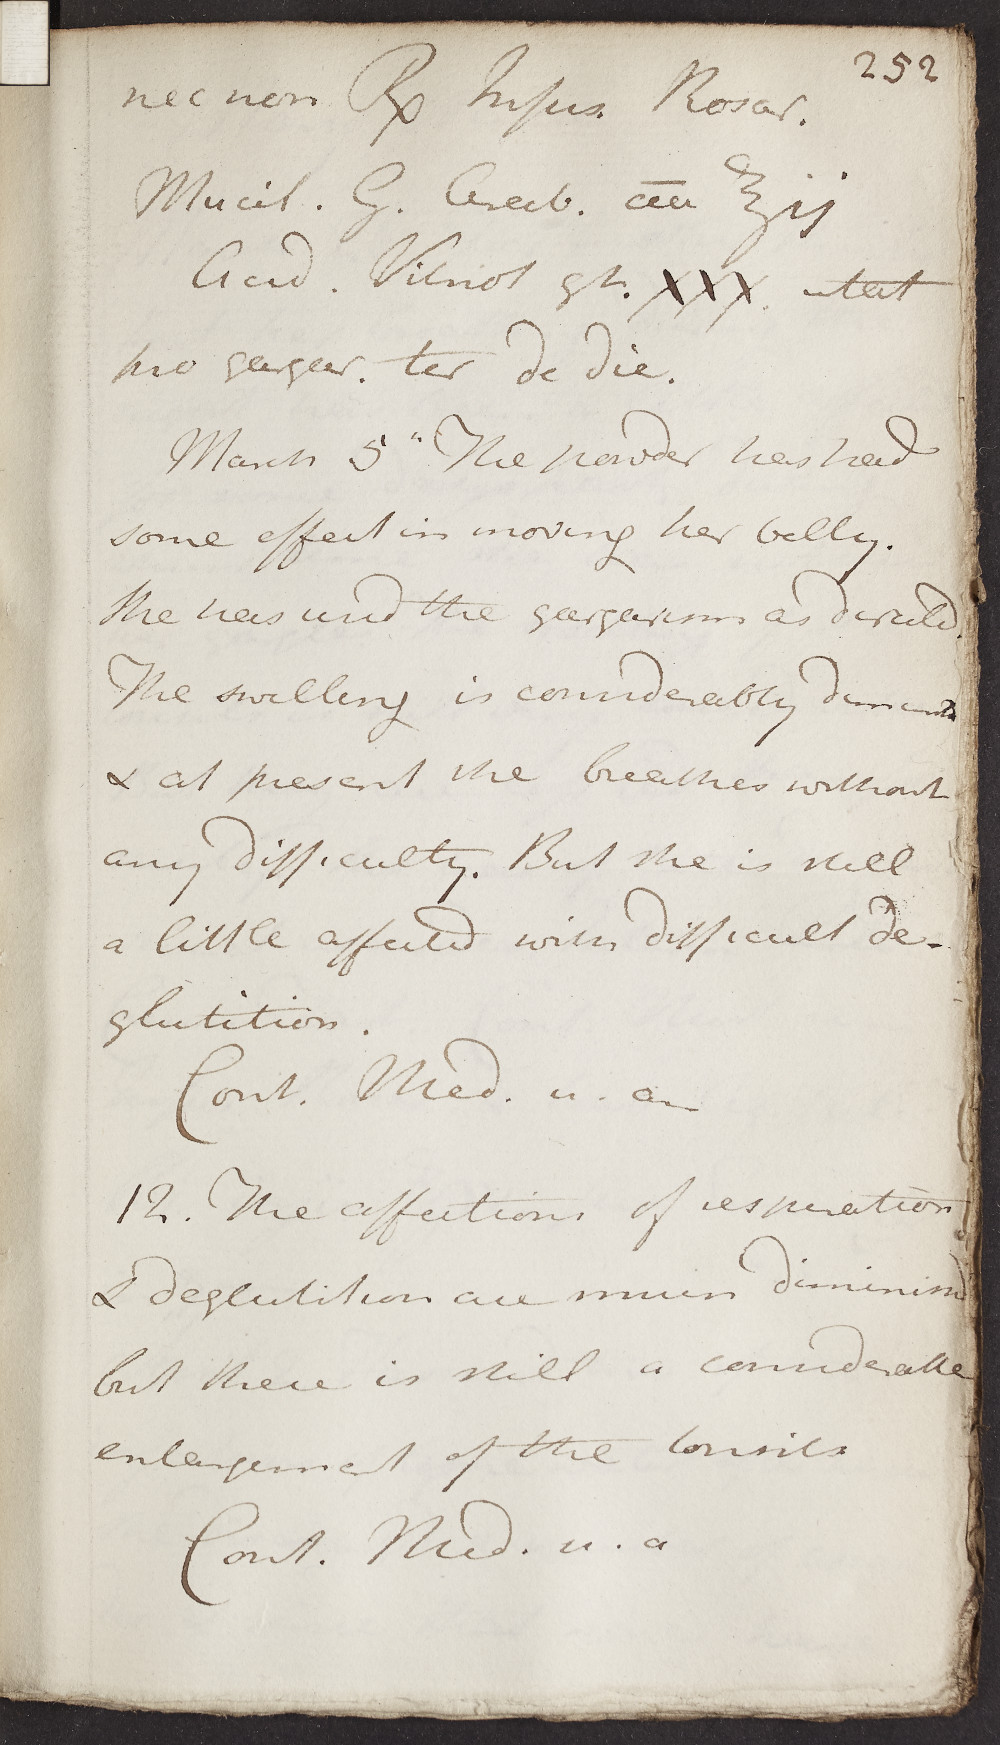 252
nec non ℞ Infus. Rosar.
Mucil. G. Arab. aa ℥ij
Acid. Vitriol gt. XXX. utat
pro gargar. ter de die.
March 5" The powder has had
some effect in moving her belly.
She has used the gargarism as directed.
The swelling is considerably diminish'd
& at present she breathes without
any difficulty. But she is still
a little affected with difficult de-
glutition.
Cont. Med. u. a
12. The affections of respiration
& deglutition are much diminish'd
but there is still a considerable
enlargement of the tonsils
Cont. Med. u. a